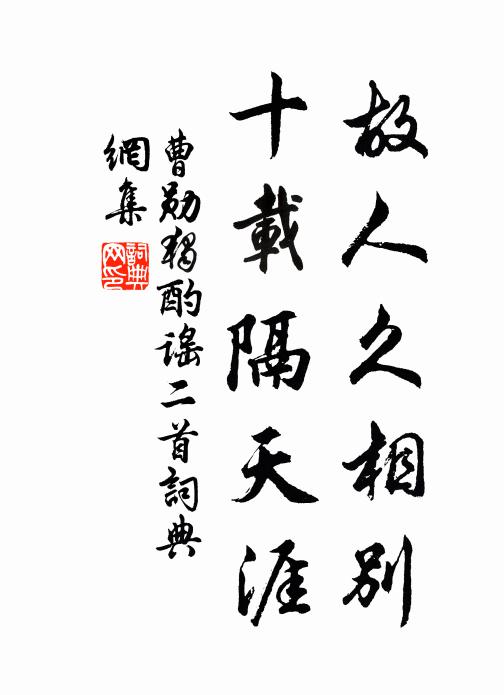 故人久相别
十載隔天涯
曹勛獨酌謠二首詞典
網集
詞典
网印